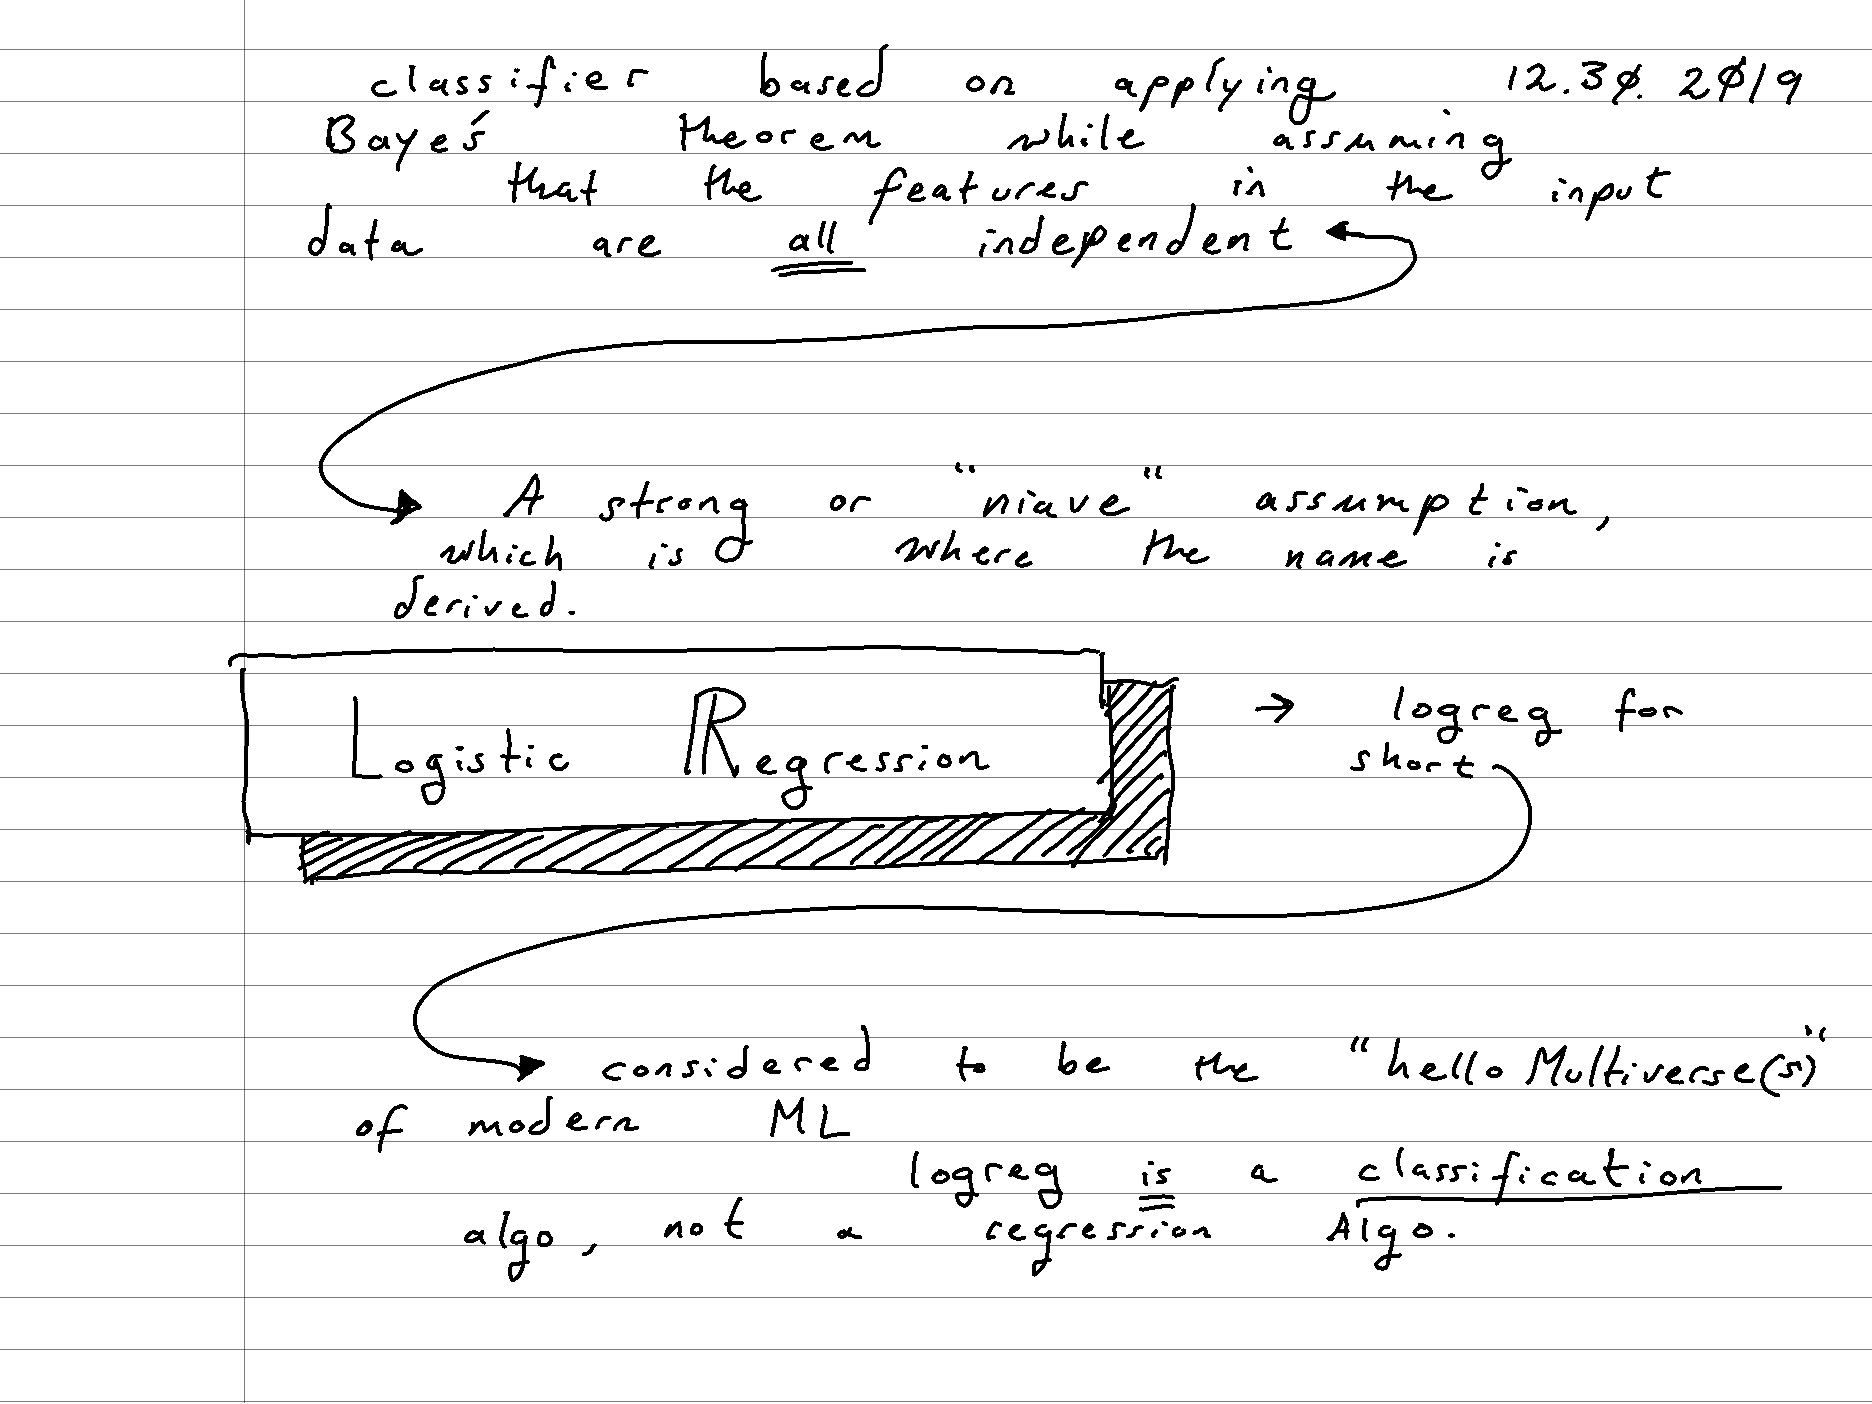 classifier based on applying 12.30.2019
Baye's theorem while assuming
that the features in the input
data are all independent
A strong or "niave" assumption,
which is where the name is
derived.
Logistic Regression → logreg for
short
considered to be the "hello Multiverse(s)"
of modern ML
logreg is a classification
algo, not a regression Algo.